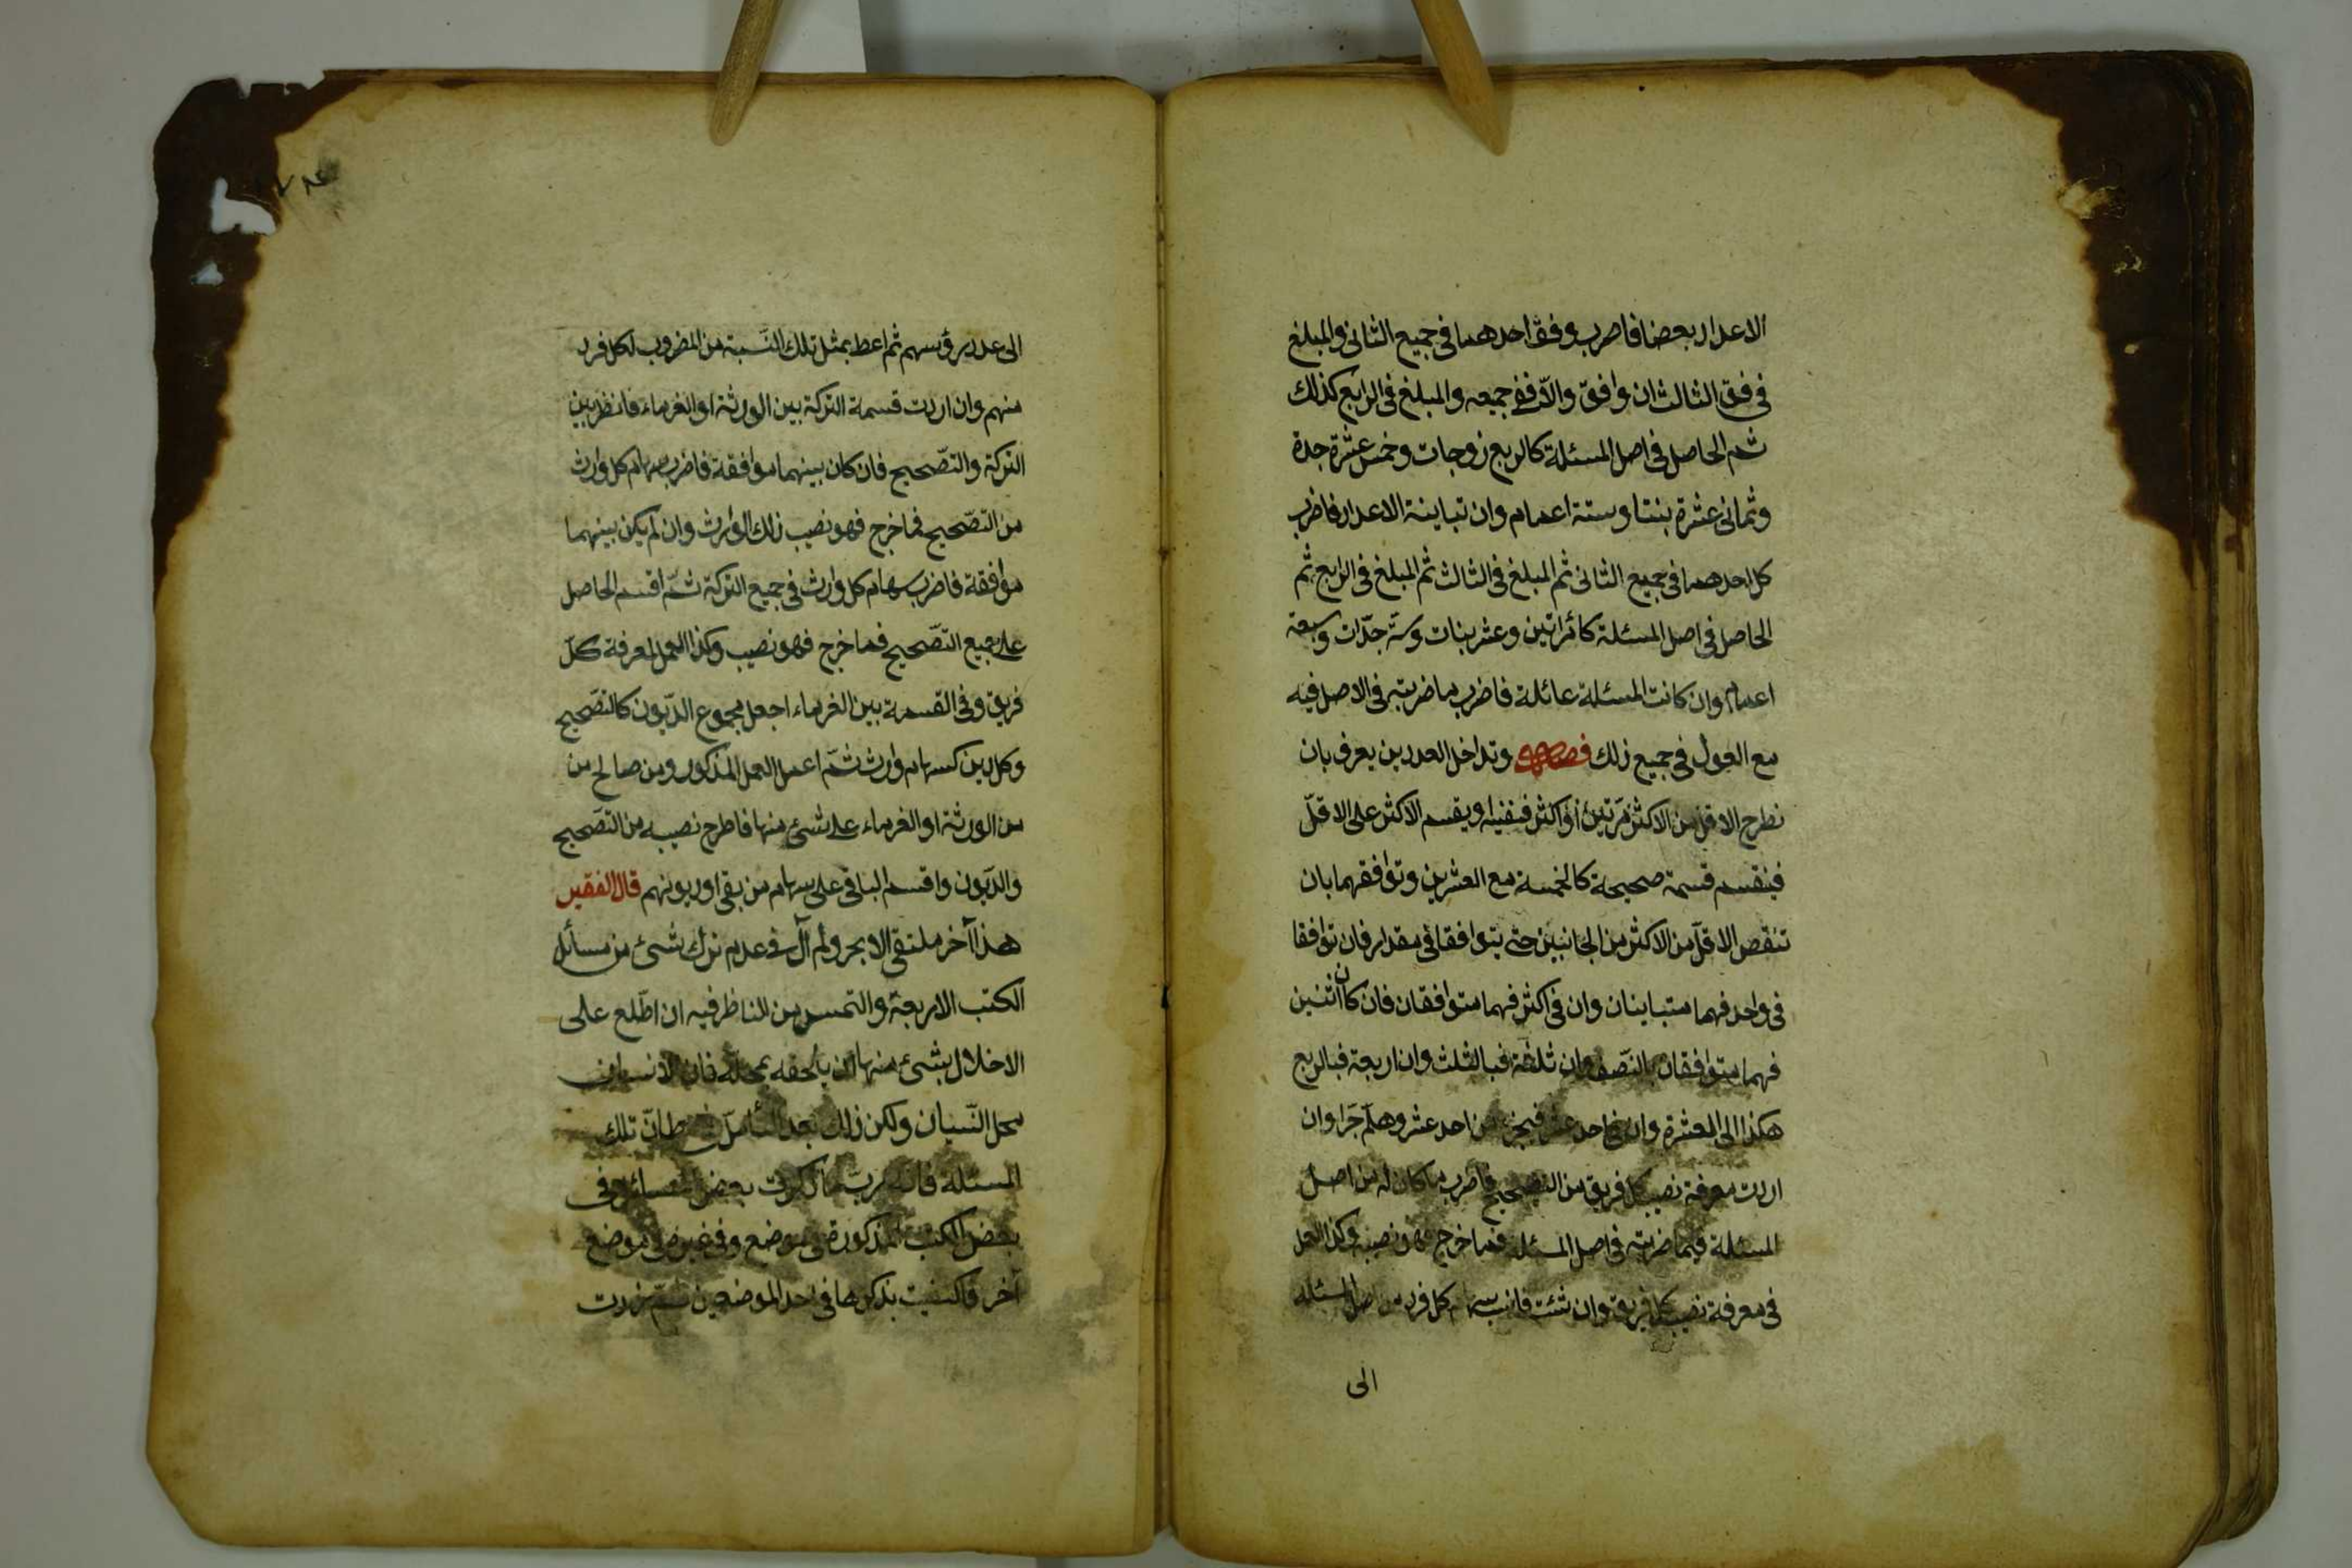 الاعداد بعضا فاضرب وفق احدهما فى جميع الثانى والمبلغ
فى وفق الثالث ان وافق والّا ففى جميعه والمبلغ فى الرابع كذلك
ثم الحاصل فى اصل المسئلة كاربع زوجات وخمس عشرة جدة
وثمانى عشرة بنتا وستة اعمام وان تباينة الاعداد فاضرب
كل احدهما فى جميع الثانى ثم المبلغ فى الثالث ثم المبلغ فى الرابع ثم
الحاصل فى اصل المسئلة كامرأتين وعشر بنات وستّ جدّات وسبعة
اعمام وان كانت المسئلة عائلة فاضرب ما ضربته فى الاصل فيه
مع العول فى جميع ذلك فصل وتداخل العددين يعرف بان
تطرح الاقل من الاكثر مرّتين او اكثر فتفنيه او يقسم الاكثر على الاقلّ
فينقسم قسمة صحيحة كالخمسة مع العشرين وتوافقهما بان
تنقص الاقلّ من الاكثر من الجانبين حتى يتوافقا فى مقدار فان توافقا
فى واحد فهما متباينان وان فى اكثر فهما متوافقان فان كان اثنين
فهما متوافقان بالنّصف وان ثلثة فبالثلث وان اربعة فبالربع
هكذا الى العشرة وان فى احد عشر فبجزء من احد عشر وهلمّ جّرا وان
اردت معرفة نصيب كل فريق من التصحيح فاضرب ما كان له من اصل
المسئلة فيما ضربته فى اصل المسئلة فما خرج فهو نصيبه وكذا العمل
فى معرفة نصيب كل فريق وان شئت فانسب سهام كل فرد من اصل المسئلة
الى
الى عدد رؤسهم ثم اعط بمثل تلك النّسبة من المضروب لكل فرد
منهم وان اردت قسمة التركة بين الورثة او الغرماء فانظر بين
التركة والتّصحيح فان كان بينهما موافقة فاضرب سهام كل وارث
من التصّحيح فما خرج فهو نصيب ذلك الوارث وان لم يكن بينهما
موافقة فاضرب سهام كل وارث فى جميع التركة ثمّ اقسم الحاصل
على جميع التّصّحيح فما خرج فهو نصيب وكذا العمل لمعرفة كلّ
فريق وفى القسمة بين الغرماء اجعل مجموع الدّيون كالتصّحيح
وكل دين كسهام وارث ثمّ اعمل العمل المذكور ومن صالح من
من الورثة او الغرماء على شئ منها فاطرح نصيبه من التصّحيح
والدّيون واقسم الباقى على سهام من بقى او ديونهم قال الفقير
هذا آخر ملتقى الابحر ولم آل فى عدم ترك شئ من مسائل
الكتب الاربعة والتمس من الناظر فيه ان اطّلع على
الاخلال بشئ منها ان يلحقه بمحلّه فان الانسان
محل النّسيان ولكن ذلك بعد التأمّل فى مظانّ تلك
المسئلة فانه ربما ذكرت بعض المسائل فى
بعض الكتب المذكورة فى موضع وفى غيره فى موضع
آخر فاكتفيت بذكرها فى احد الموضعين ثمّ زدت